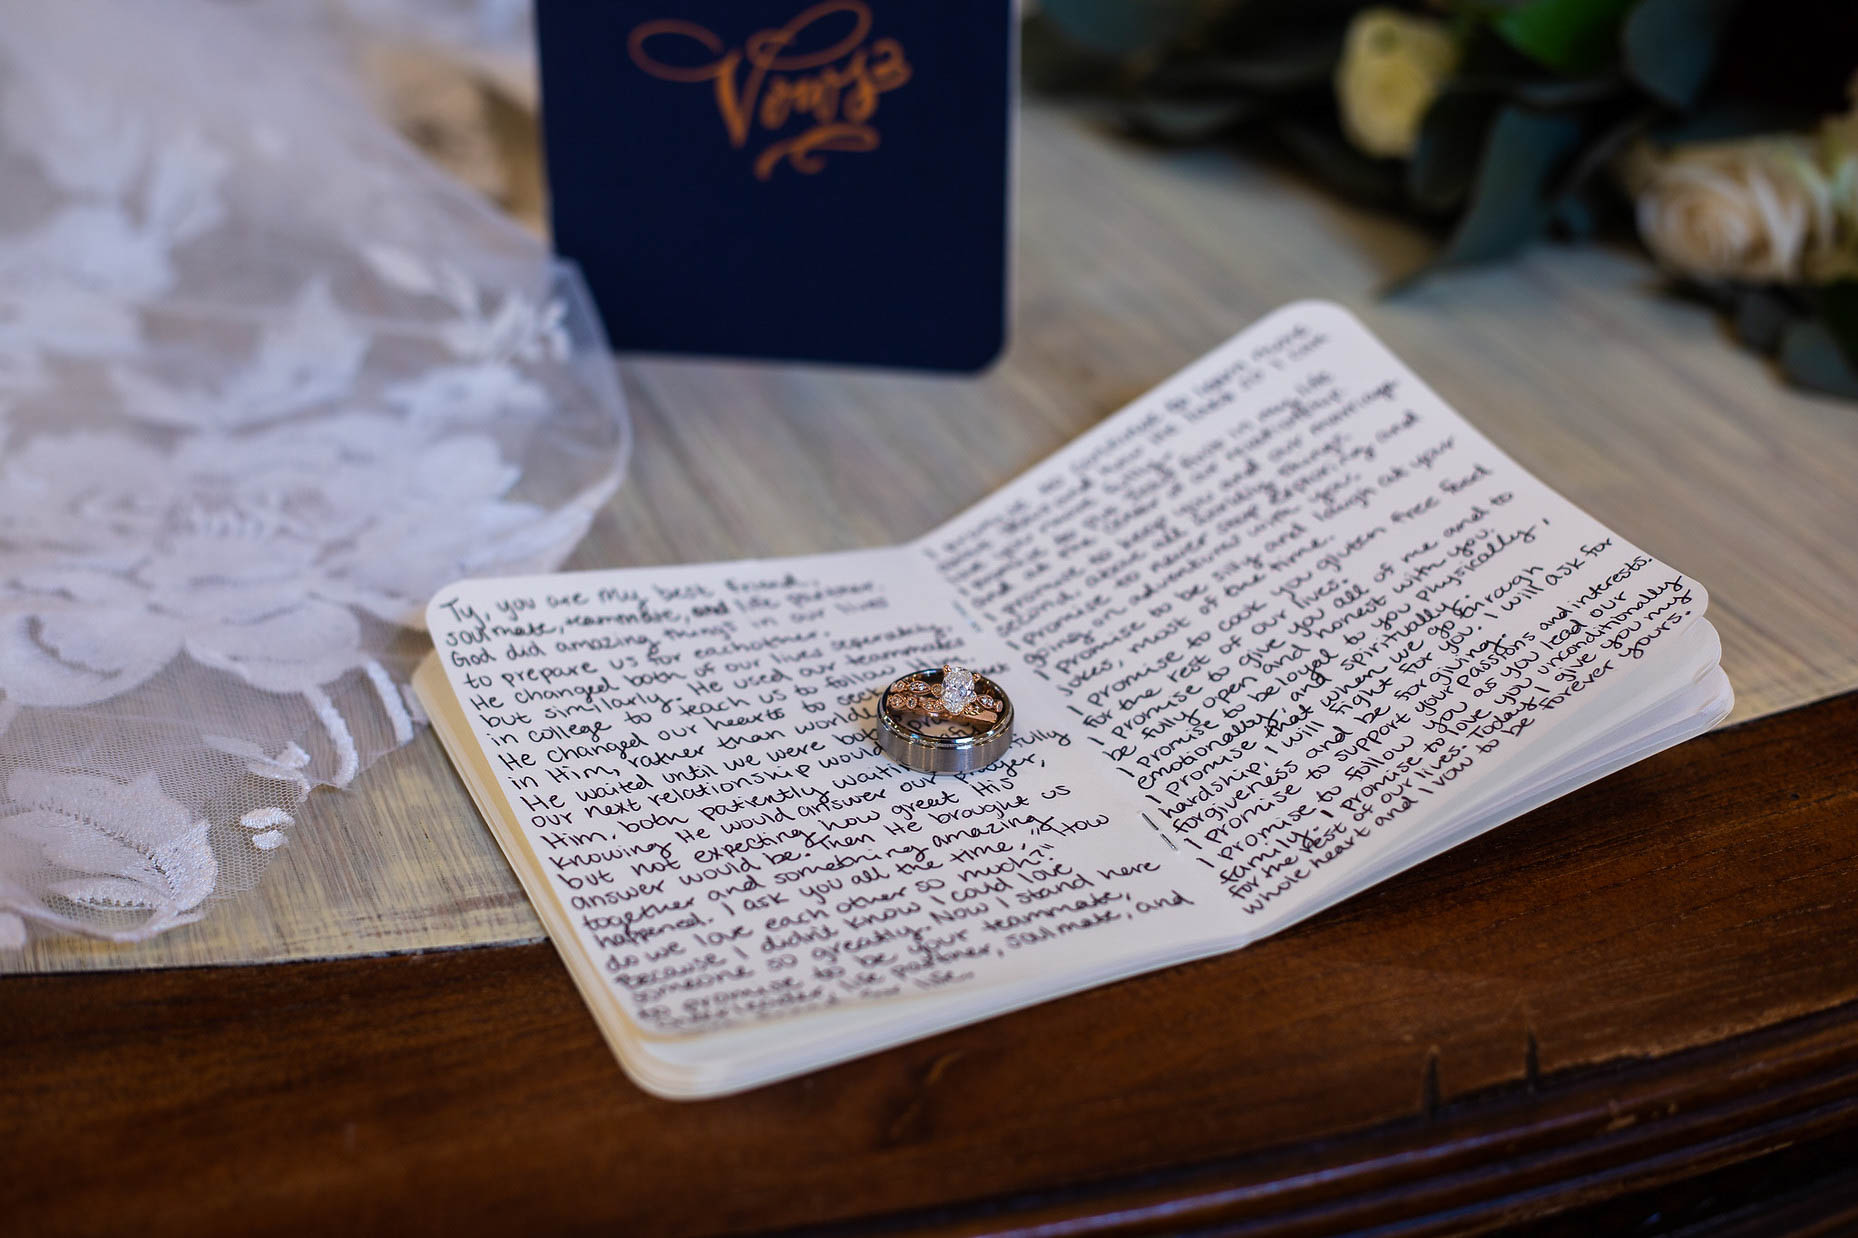 Vows
Ty, you are my best friend,
soulmate, teammate, and life partner.
God did amazing things in our lives
to prepare us for eachother.
He changed both of our lives seperately,
but similarly. He used our teammates
in college to teach us to follow Him.
He changed our hearts to seek
in Him, rather than worldly
He waited until we were both
our next relationship would
Him, both patiently waiting
knowing He would answer our prayer,
but not expecting how great His
answer would be. Then He brought us
together and something amazing
happened. I ask you all the time, "How
do we love each other so much?"
Because I didn't know I could love
someone so greatly. Now I stand here
to promise to be your teammate,
life partner, soulmate, and
our life.
I promise to
second, above all worldly things.
I promise to never stop exploring and
going on adventures with you.
I promise to be silly and laugh at your
jokes, most of the time.
I promise to cook you gluten free food
for the rest of our lives.
I promise to give you all of me and to
be fully open and honest with you.
I promise to be loyal to you physically,
emotionally, and spiritually.
I promise that when we go through
hardship, I will fight for you. I will ask for
forgiveness and be forgiving.
I promise to support your passions and interests.
I promise to follow you as you lead our
family. I promise to love you unconditionally
for the rest of our lives. Today I give you my
whole heart and I vow to be forever yours.